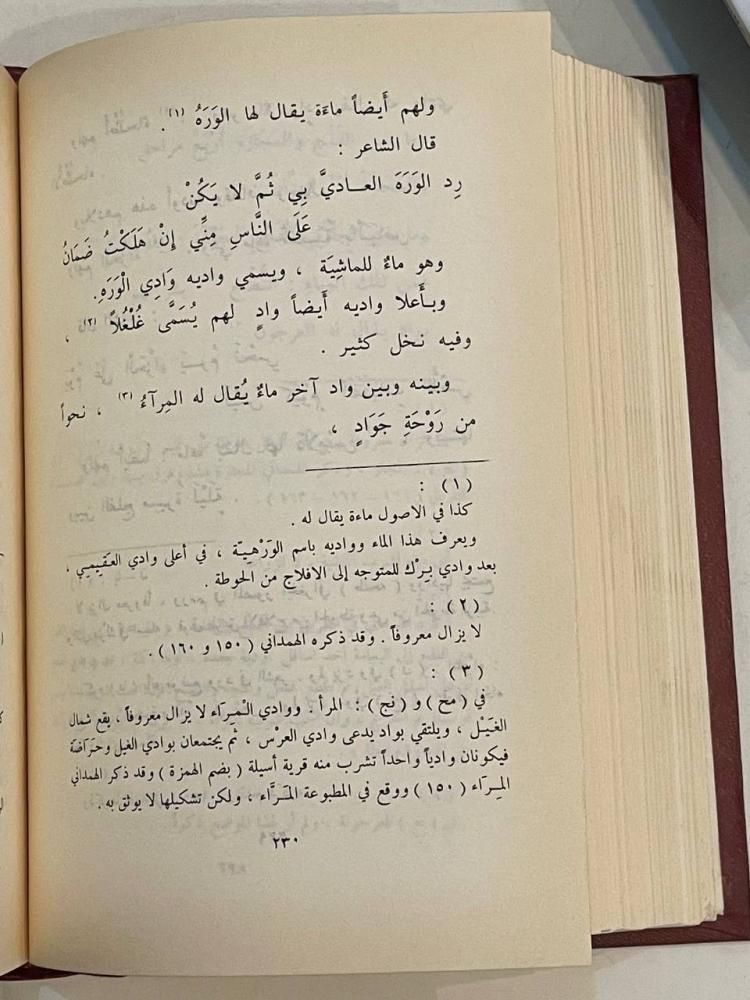 ولهم أَيضاً ماءَة يقال لها الوَرَهُ (١) .
قال الشاعر :
رِد الوَرَهَ العـــاديَّ بِي ثُمَّ لا يَكُنْ
عَلَى النَّاسِ مِنِّي إِنْ هَلَكْتُ ضَمَانُ
وهو ماءٌ للماشِيَة ، ويسمي واديه وَادِي الْوَرَهِ.
وبـأَعلا واديه أَيضاً وادٍ لهم يُسَمَّى غُلْغُلاً (٢) ،
وفيه نخل كثير .
وبينه وبين واد آخر ماءٌ يُقال له المِرآءُ (٣) ، نحواً
من رَوْحَةِ جَوَادٍ ،
(١) :
كذا في الاصول ماءة يقال له .
ويعرف هذا الماء وواديه باسم الوَرْهِيـّة ، في أعلى وادي العَقِيمِي ،
بعد وادي بِرْك للمتوجه إلى الافلاج من الحوطة .
(٢) :
لا يزال معروفاً . وقد ذكره الهمداني (١٥٠ و ١٦٠) .
(٣) :
في (مح) و (نج) : المرأ . ووادي الْمِرَاء لا يزال معروفاً ، يقع شمال
الغَيْل ، ويلتقي بواد يدعى وادي العرْس ، ثم يجتمعان بوادي الغيل وحَرَاضَة
فيكونان وادياً واحداً تشرب منه قرية أسيلة ( بضم الهمزة ) وقد ذكر الهمداني
المِـرَاء (١٥٠) ووقع في المطبوعة المَـرَّاء ، ولكن تشكيلها لا يوثق به .
٢٣٠